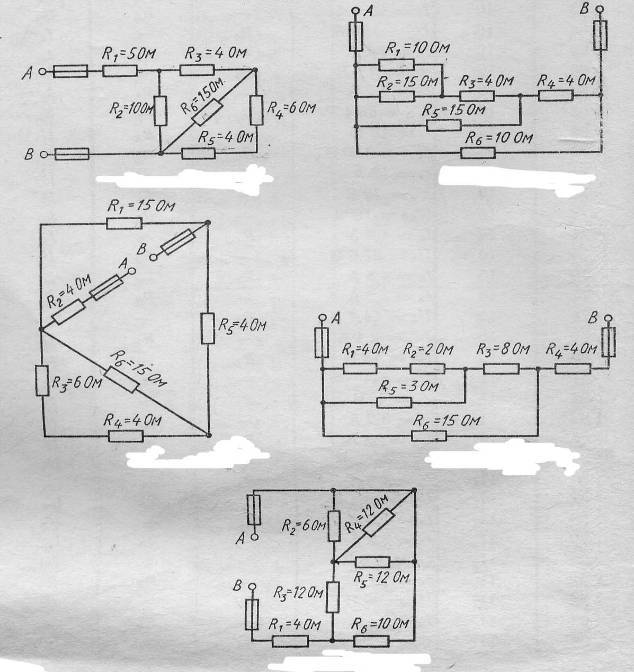 A
R₁=5 Ом
R₃=4 Ом
R₂=10 Ом
R₆=15 Ом
R₄=6 Ом
R₅=4 Ом
B
A
B
R₁=10 Ом
R₂=15 Ом
R₃=4 Ом
R₄=4 Ом
R₅=15 Ом
R₆=10 Ом
R₁=15 Ом
B
A
R₂=4 Ом
R₅=4 Ом
R₆=15 Ом
R₃=6 Ом
R₄=4 Ом
A
B
R₁=4 Ом
R₂=2 Ом
R₃=8 Ом
R₄=4 Ом
R₅=3 Ом
R₆=15 Ом
R₂=6 Ом
R₄=12 Ом
A
R₅=12 Ом
B
R₃=12 Ом
R₁=4 Ом
R₆=10 Ом